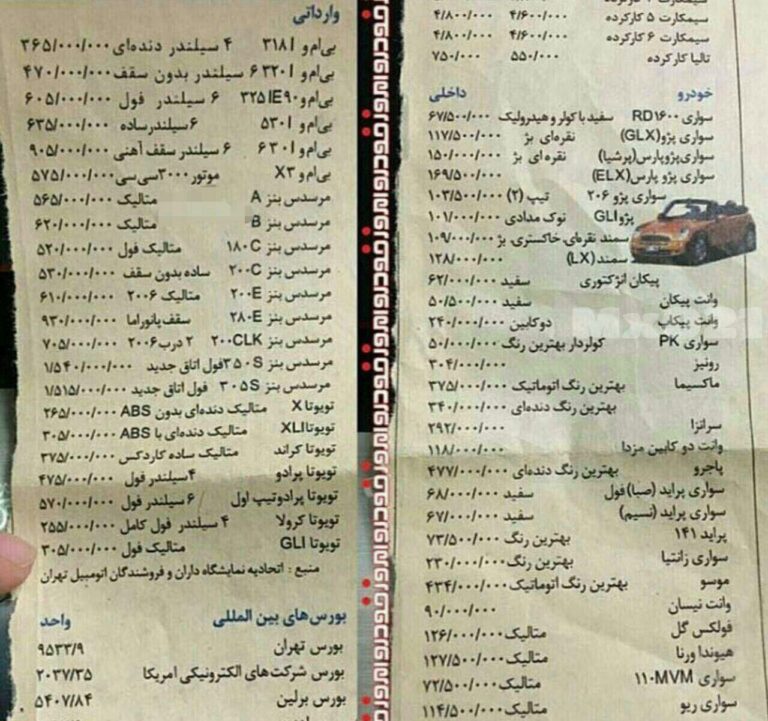 سیمکارت ۵ کارکرده ۴/۶۰۰/۰۰۰ ۴/۸۰۰/۰۰۰
سیمکارت ۶ کارکرده ۴/۶۰۰/۰۰۰ ۴/۸۰۰/۰۰۰
تالیا کارکرده ۵۵۰/۰۰۰ ۷۵۰/۰۰۰
خودرو داخلی
سواری RD۱۶۰۰ سفید با کولر و هیدرولیک ۶۷/۵۰۰/۰۰۰
سواری پژو(GLX) نقره‌ای بژ ۱۱۷/۵۰۰/۰۰۰
سواری پژوپارس(پرشیا) نقره‌ای بژ ۱۵۰/۰۰۰/۰۰۰
سواری پژو پارس(ELX) ۱۶۹/۵۰۰/۰۰۰
سواری پژو ۲۰۶ تیپ (۲) ۱۰۳/۵۰۰/۰۰۰
پژوGLI نوک مدادی ۱۰۱/۰۰۰/۰۰۰
سمند نقره‌ای، خاکستری، بژ ۱۰۹/۰۰۰/۰۰۰
سمند(LX) ۱۲۸/۰۰۰/۰۰۰
پیکان انژکتوری سفید ۶۲/۰۰۰/۰۰۰
وانت پیکان سفید ۵۰/۵۰۰/۰۰۰
وانت پیکاپ دوکابین ۲۴۰/۰۰۰/۰۰۰
سواری PK کولردار بهترین رنگ ۵۰/۰۰۰/۰۰۰
رونیز ۳۰۴/۰۰۰/۰۰۰
ماکسیما بهترین رنگ اتوماتیک ۳۷۵/۰۰۰/۰۰۰
بهترین رنگ دنده‌ای ۳۴۰/۰۰۰/۰۰۰
سرانزا ۲۹۲/۰۰۰/۰۰۰
وانت دو کابین مزدا ۱۱۸/۰۰۰/۰۰۰
پاجرو بهترین رنگ دنده‌ای ۴۷۷/۰۰۰/۰۰۰
سواری پراید (صبا)فول سفید ۶۸/۰۰۰/۰۰۰
سواری پراید (نسیم) سفید ۶۷/۰۰۰/۰۰۰
پراید ۱۴۱ بهترین رنگ ۷۳/۵۰۰/۰۰۰
سواری زانتیا بهترین رنگ ۲۳۰/۰۰۰/۰۰۰
موسو بهترین رنگ اتوماتیک ۴۳۴/۰۰۰/۰۰۰
وانت نیسان ۹۰/۰۰۰/۰۰۰
فولکس گل متالیک ۱۲۶/۰۰۰/۰۰۰
هیوندا ورنا متالیک ۱۲۷/۵۰۰/۰۰۰
سواری ۱۱۰MVM متالیک ۷۲/۵۰۰/۰۰۰
سواری ریو متالیک ۱۱۴/۵۰۰/۰۰۰
وارداتی
بی‌ام‌و ۳۱۸I ۴ سیلندر دنده‌ای ۳۶۵/۰۰۰/۰۰۰
بی‌ام‌و ۳۲۰I ۶ سیلندر بدون سقف ۴۷۰/۰۰۰/۰۰۰
بی‌ام‌و ۳۲۵IE۹۰ ۶ سیلندر فول ۶۰۵/۰۰۰/۰۰۰
بی‌ام‌و ۵۳۰I ۶سیلندرساده ۶۳۵/۰۰۰/۰۰۰
بی‌ام‌و ۶۳۰I ۶ سیلندر سقف آهنی ۹۰۵/۰۰۰/۰۰۰
بی‌ام‌و X۳ موتور ۳۰۰۰سی‌سی ۵۷۵/۰۰۰/۰۰۰
مرسدس بنز A متالیک ۵۶۵/۰۰۰/۰۰۰
مرسدس بنز B متالیک ۶۲۰/۰۰۰/۰۰۰
مرسدس بنز ۱۸۰C متالیک فول ۵۲۰/۰۰۰/۰۰۰
مرسدس بنز ۲۰۰C ساده بدون سقف ۵۳۰/۰۰۰/۰۰۰
مرسدس بنز ۲۰۰E متالیک ۲۰۰۶ ۶۱۰/۰۰۰/۰۰۰
مرسدس بنز ۲۸۰E سقف پانوراما ۹۳۰/۰۰۰/۰۰۰
مرسدس بنز ۲۰۰CLK ۲ درب ۲۰۰۶ ۷۰۵/۰۰۰/۰۰۰
مرسدس بنز ۳۵۰S فول اتاق جدید ۱/۵۴۰/۰۰۰/۰۰۰
مرسدس بنز ۳۰۵S فول اتاق جدید ۱/۵۱۵/۰۰۰/۰۰۰
تویوتا X متالیک دنده‌ای بدون ABS ۲۶۵/۰۰۰/۰۰۰
تویوتاXLI متالیک دنده‌ای با ABS ۳۰۵/۰۰۰/۰۰۰
تویوتا کراند متالیک ساده کاردکس ۳۷۵/۰۰۰/۰۰۰
تویوتا پرادو ۴سیلندر فول ۴۷۵/۰۰۰/۰۰۰
تویوتا پرادوتیپ اول ۶ سیلندر فول ۵۷۰/۰۰۰/۰۰۰
تویوتا کرولا ۴ سیلندر فول کامل ۲۵۵/۰۰۰/۰۰۰
تویوتا GLI متالیک فول ۳۰۵/۰۰۰/۰۰۰
منبع : اتحادیه نمایشگاه داران و فروشندگان اتومبیل تهران
بورس‌های بین المللی واحد
بورس تهران ۹۵۳۳/۹
بورس شرکت‌های الکترونیکی امریکا ۲۰۳۷/۳۵
بورس برلین ۵۴۰۷/۸۴